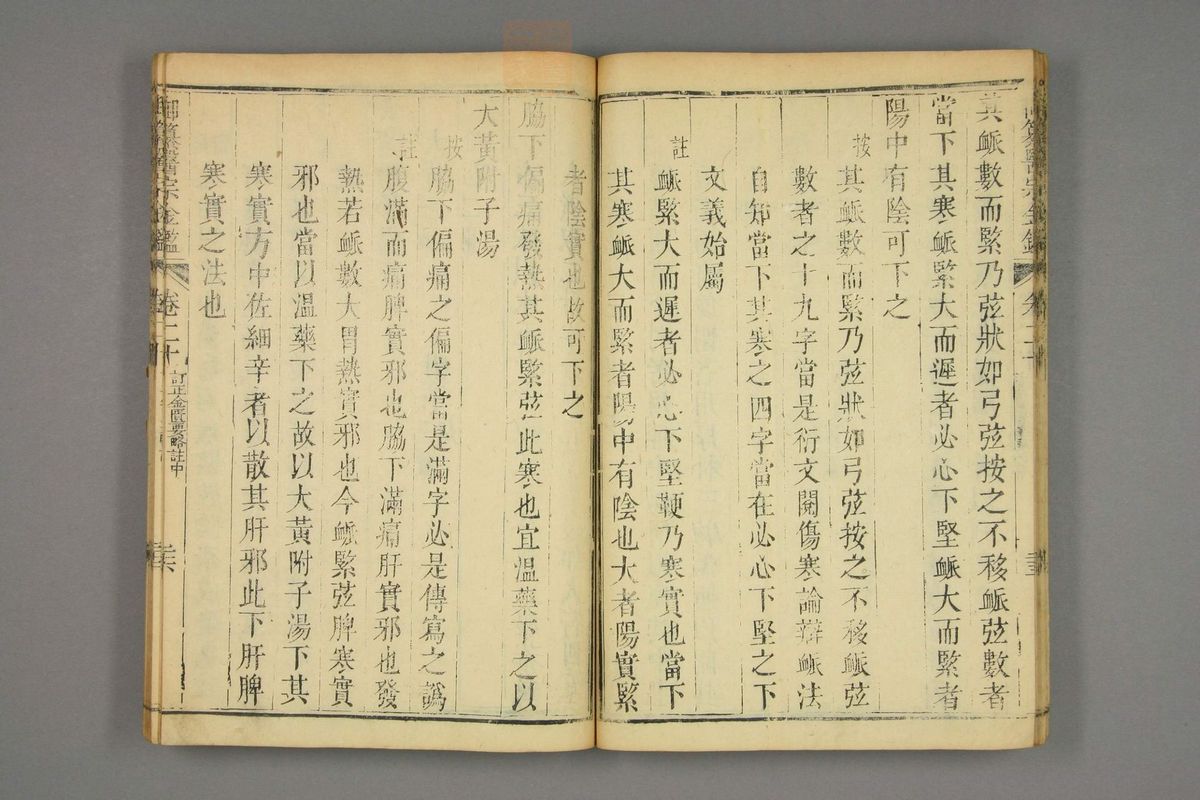 御纂醫宗金鑑
卷二十
其脈數而緊乃弦狀如弓弦按之不移脈弦數者
當下其寒脈緊大而遲者必心下堅脈大而緊者
陽中有陰可下之
按
其脈數而緊乃弦狀如弓弦按之不移脈弦
數者之十九字當是衍文閱傷寒論辯脈法
自知當下其寒之四字當在必心下堅之下
文義始屬
註
脈緊大而遲者必心下堅鞕乃寒實也當下
其寒脈大而緊者陽中有陰也大者陽實緊
者陰實也故可下之
脇下偏痛發熱其脈緊弦此寒也宜溫藥下之以
大黃附子湯
按
脇下偏痛之偏字當是滿字必是傳寫之譌
註
腹滿而痛脾實邪也脇下滿痛肝實邪也發
熱若脈數大胃熱實邪也今脈緊弦脾寒實
邪也當以溫藥下之故以大黃附子湯下其
寒實方中佐細辛者以散其肝邪此下肝脾
寒實之法也
御纂醫宗金鑑
卷二十
訂正金匱要略註中